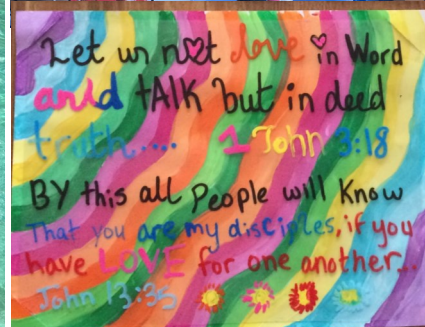 Let us not love in Word
and tAlK but in deed
truth.... 1 John 3:18
BY this all People will Know
That you are my disciples, if you
have LOVE for one another...
John 13:35